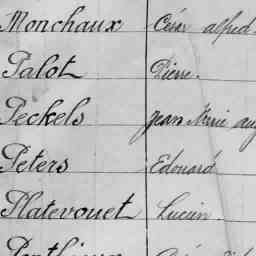 Monchaux César alfred
Palot Pierre.
Peckels Jean Marie aug
Peters Edouard
Platevouet Lucien.